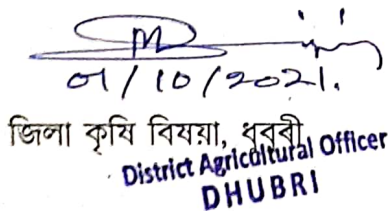 01/10/2021.
জিলা কৃষি বিষয়া, ধুবৰী
District Agricultural Officer
DHUBRI